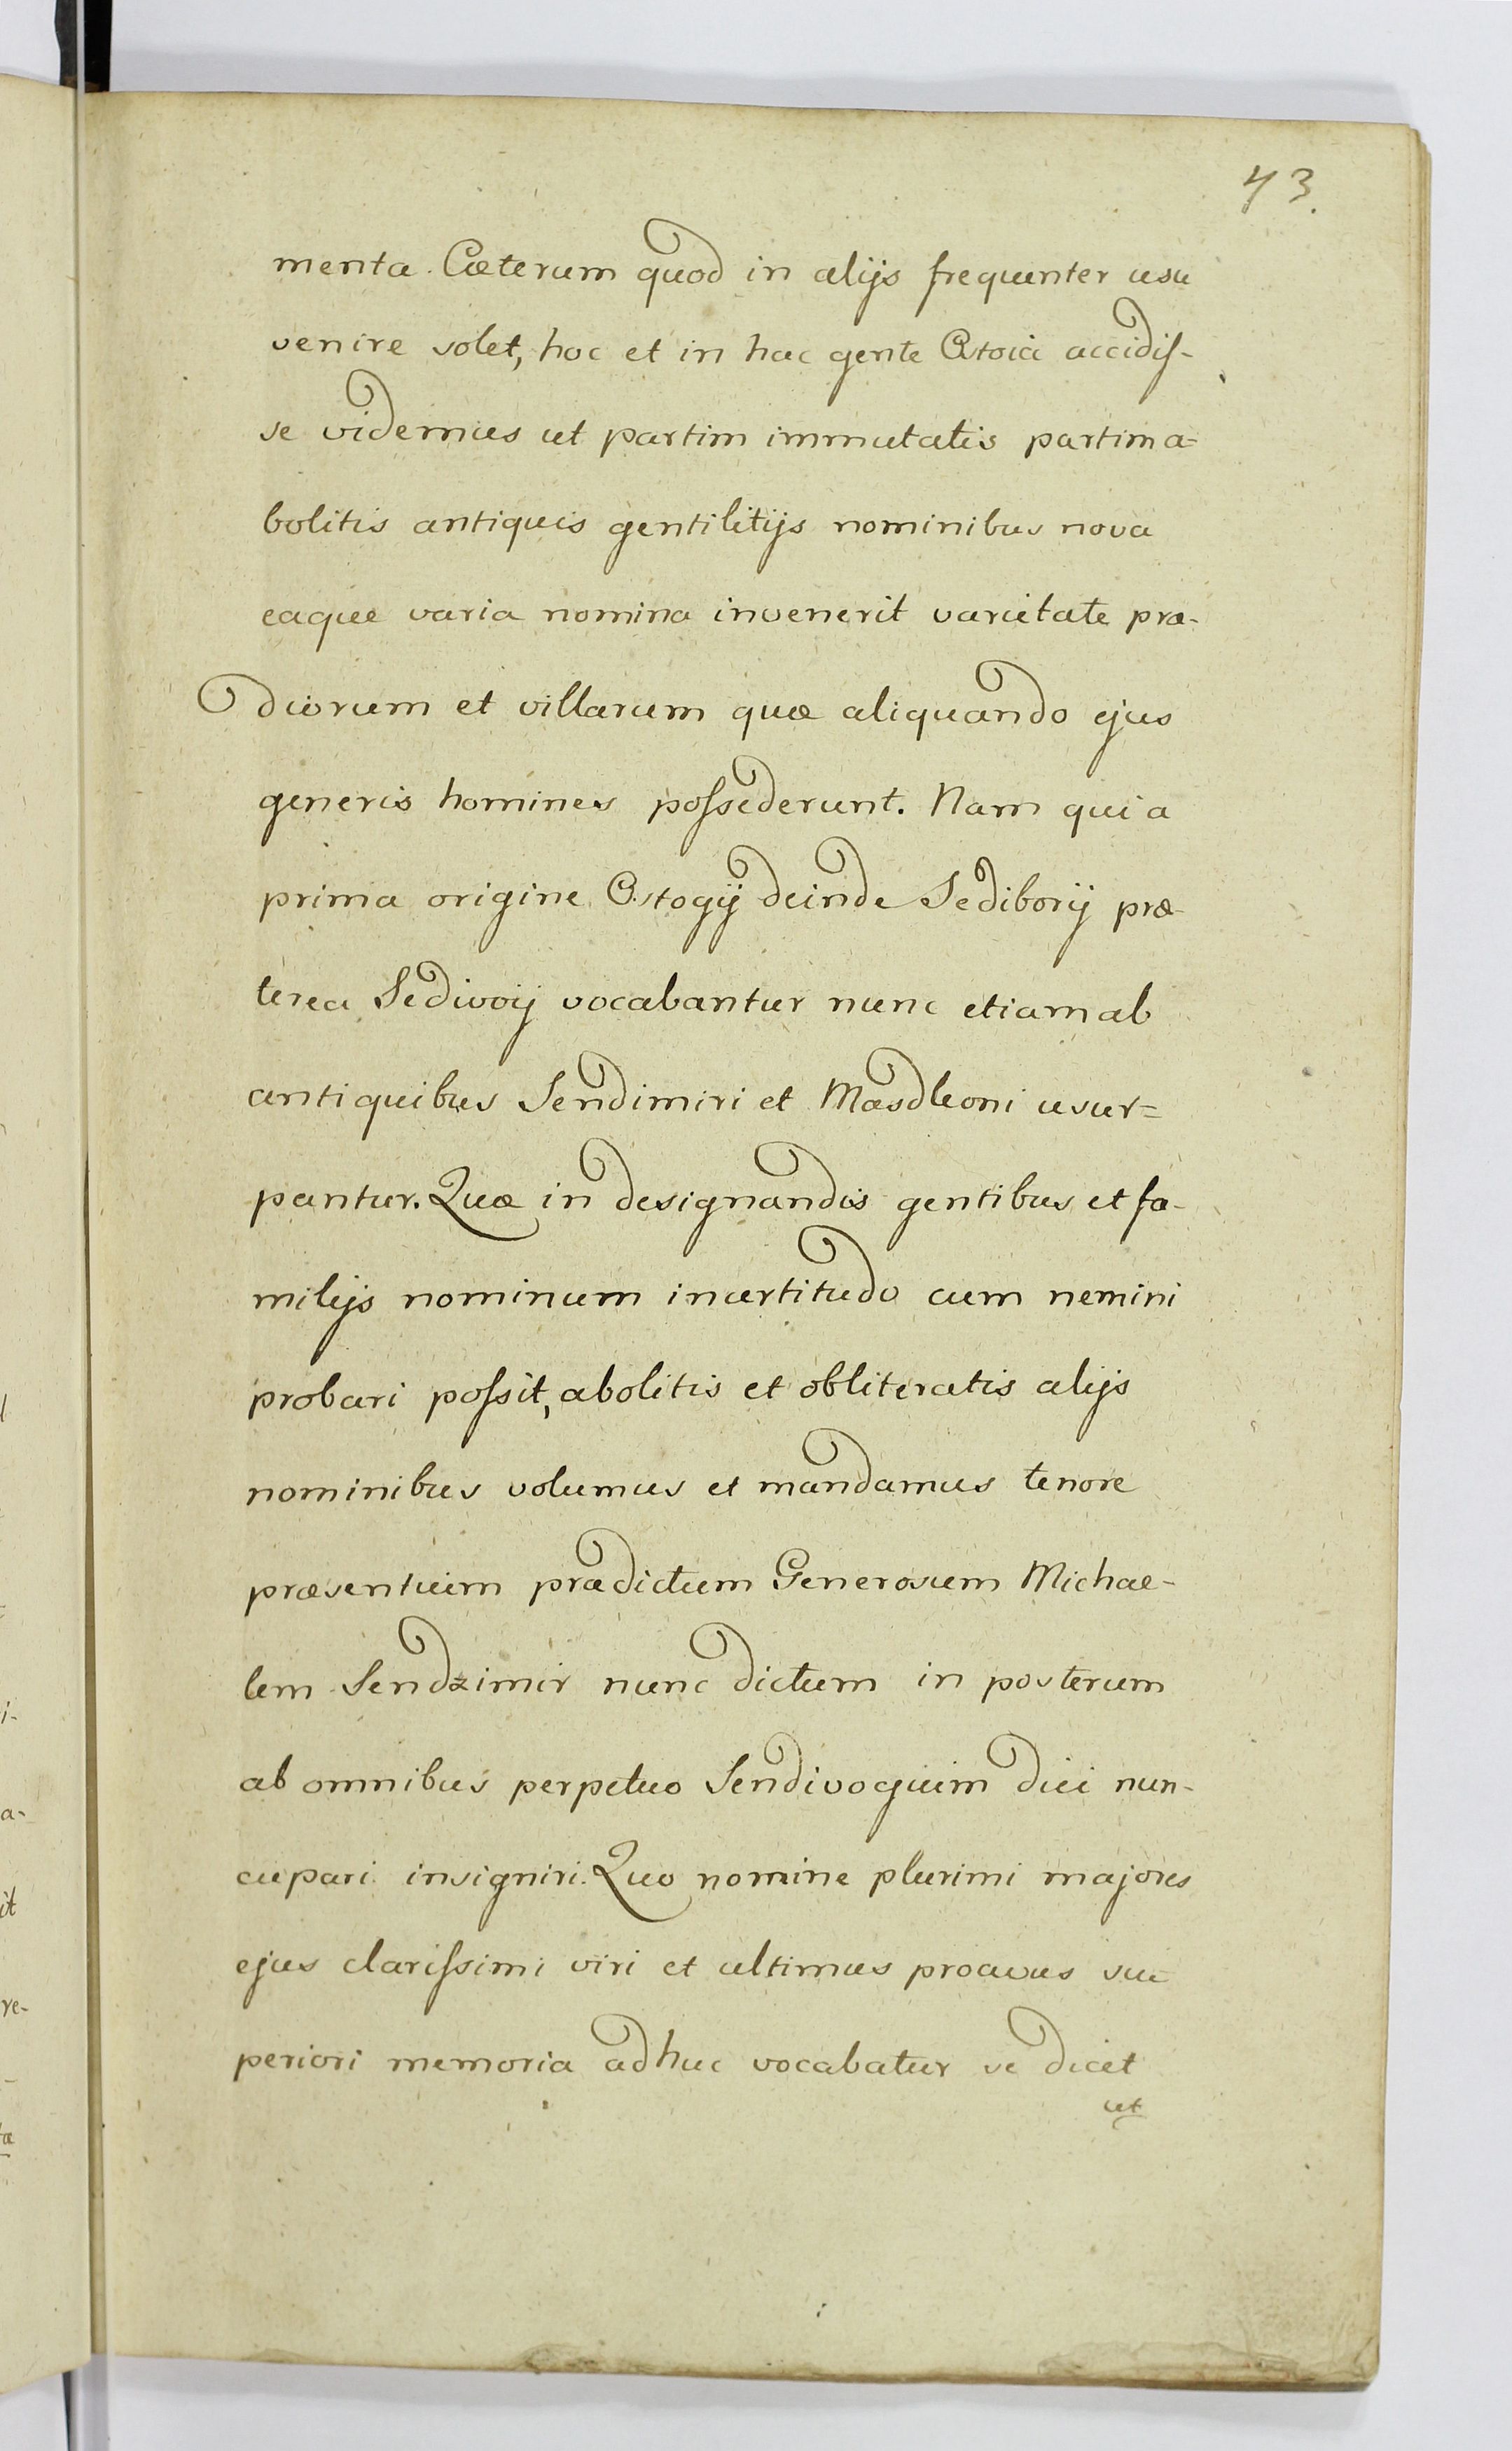 43.
menta. Cæterum quod in alijs frequenter usu
venire solet, hoc et in hac gente Ostoia accidiſ-
se videmus ut partim immutatis partim a=
bolitis antiquis gentilitijs nominibus nova
eaque varia nomina invenerit varietate præ-
diorum et villarum quæ aliquando ejus
generis homines poſsederunt. Nam qui a
prima origine Ostogij deinde Sediborij præ-
terea Sedivoij vocabantur nunc etiam ab
antiquibus Sendimiri et Mosdleoni usur=
pantur. Quæ in designandis gentibus et fa-
milijs nominum incertitudo cum nemini
probari poſsit, abolitis et obliteratis alijs
nominibus volumus et mandamus tenore
præsentium prædictum Generosum Michae-
lem Sendzimir nunc dictum in posterum
ab omnibus perpetuo Sendivogium dici nun-
cupari insigniri. Quo nomine plurimi majores
ejus clariſsimi viri et ultimus proavus su
periori memoria adhuc vocabatur se dicet
ut